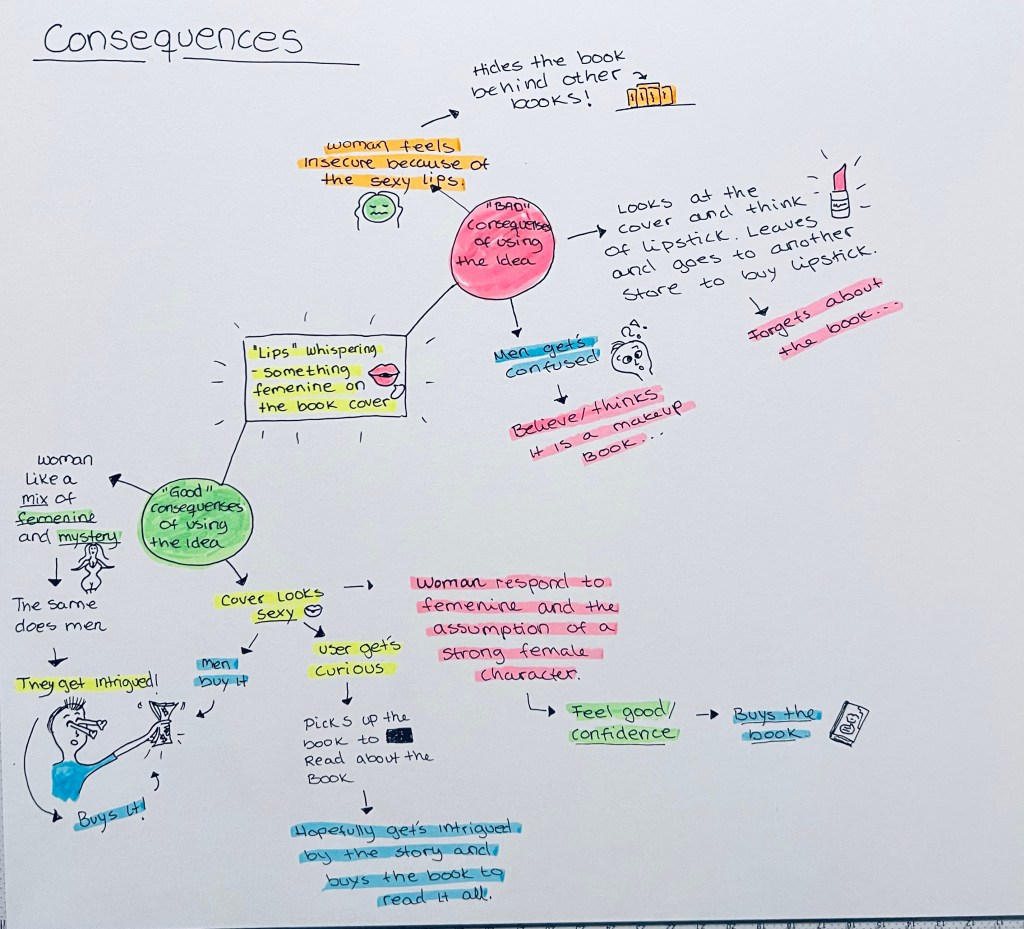 Consequences
Hides the book
behind other
books!
woman feels
insecure because of
the sexy lips.
"BAD"
consequenses
of using
the idea
Looks at the
cover and think
of lipstick. Leaves
and goes to another
store to buy lipstick.
Forgets about
the book...
Men get's
confused
Believe/thinks
it is a makeup
book...
"Lips" whispering
- something
femenine on
the book cover
"Good"
consequenses
of using
the idea
woman
like a
mix of
femenine
and mystery
The same
does men
They get intrigued!
Buys it!
Cover looks
sexy
men
buy it
user get's
curious
Picks up the
book to
Read about the
Book
Hopefully get's intrigued
by the story and
buys the book to
read it all.
Woman respond to
femenine and the
assumption of a
strong female
character.
Feel good/
confidence
Buys the
book